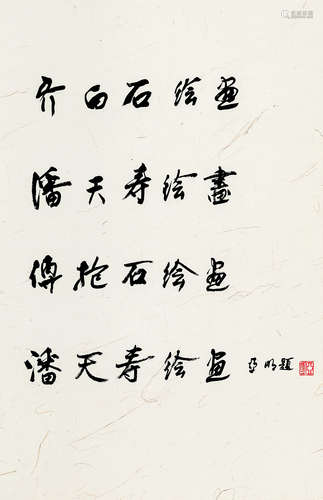 齐白石绘画
潘天寿绘畫
傅抱石绘画
潘天寿绘画 亚明题